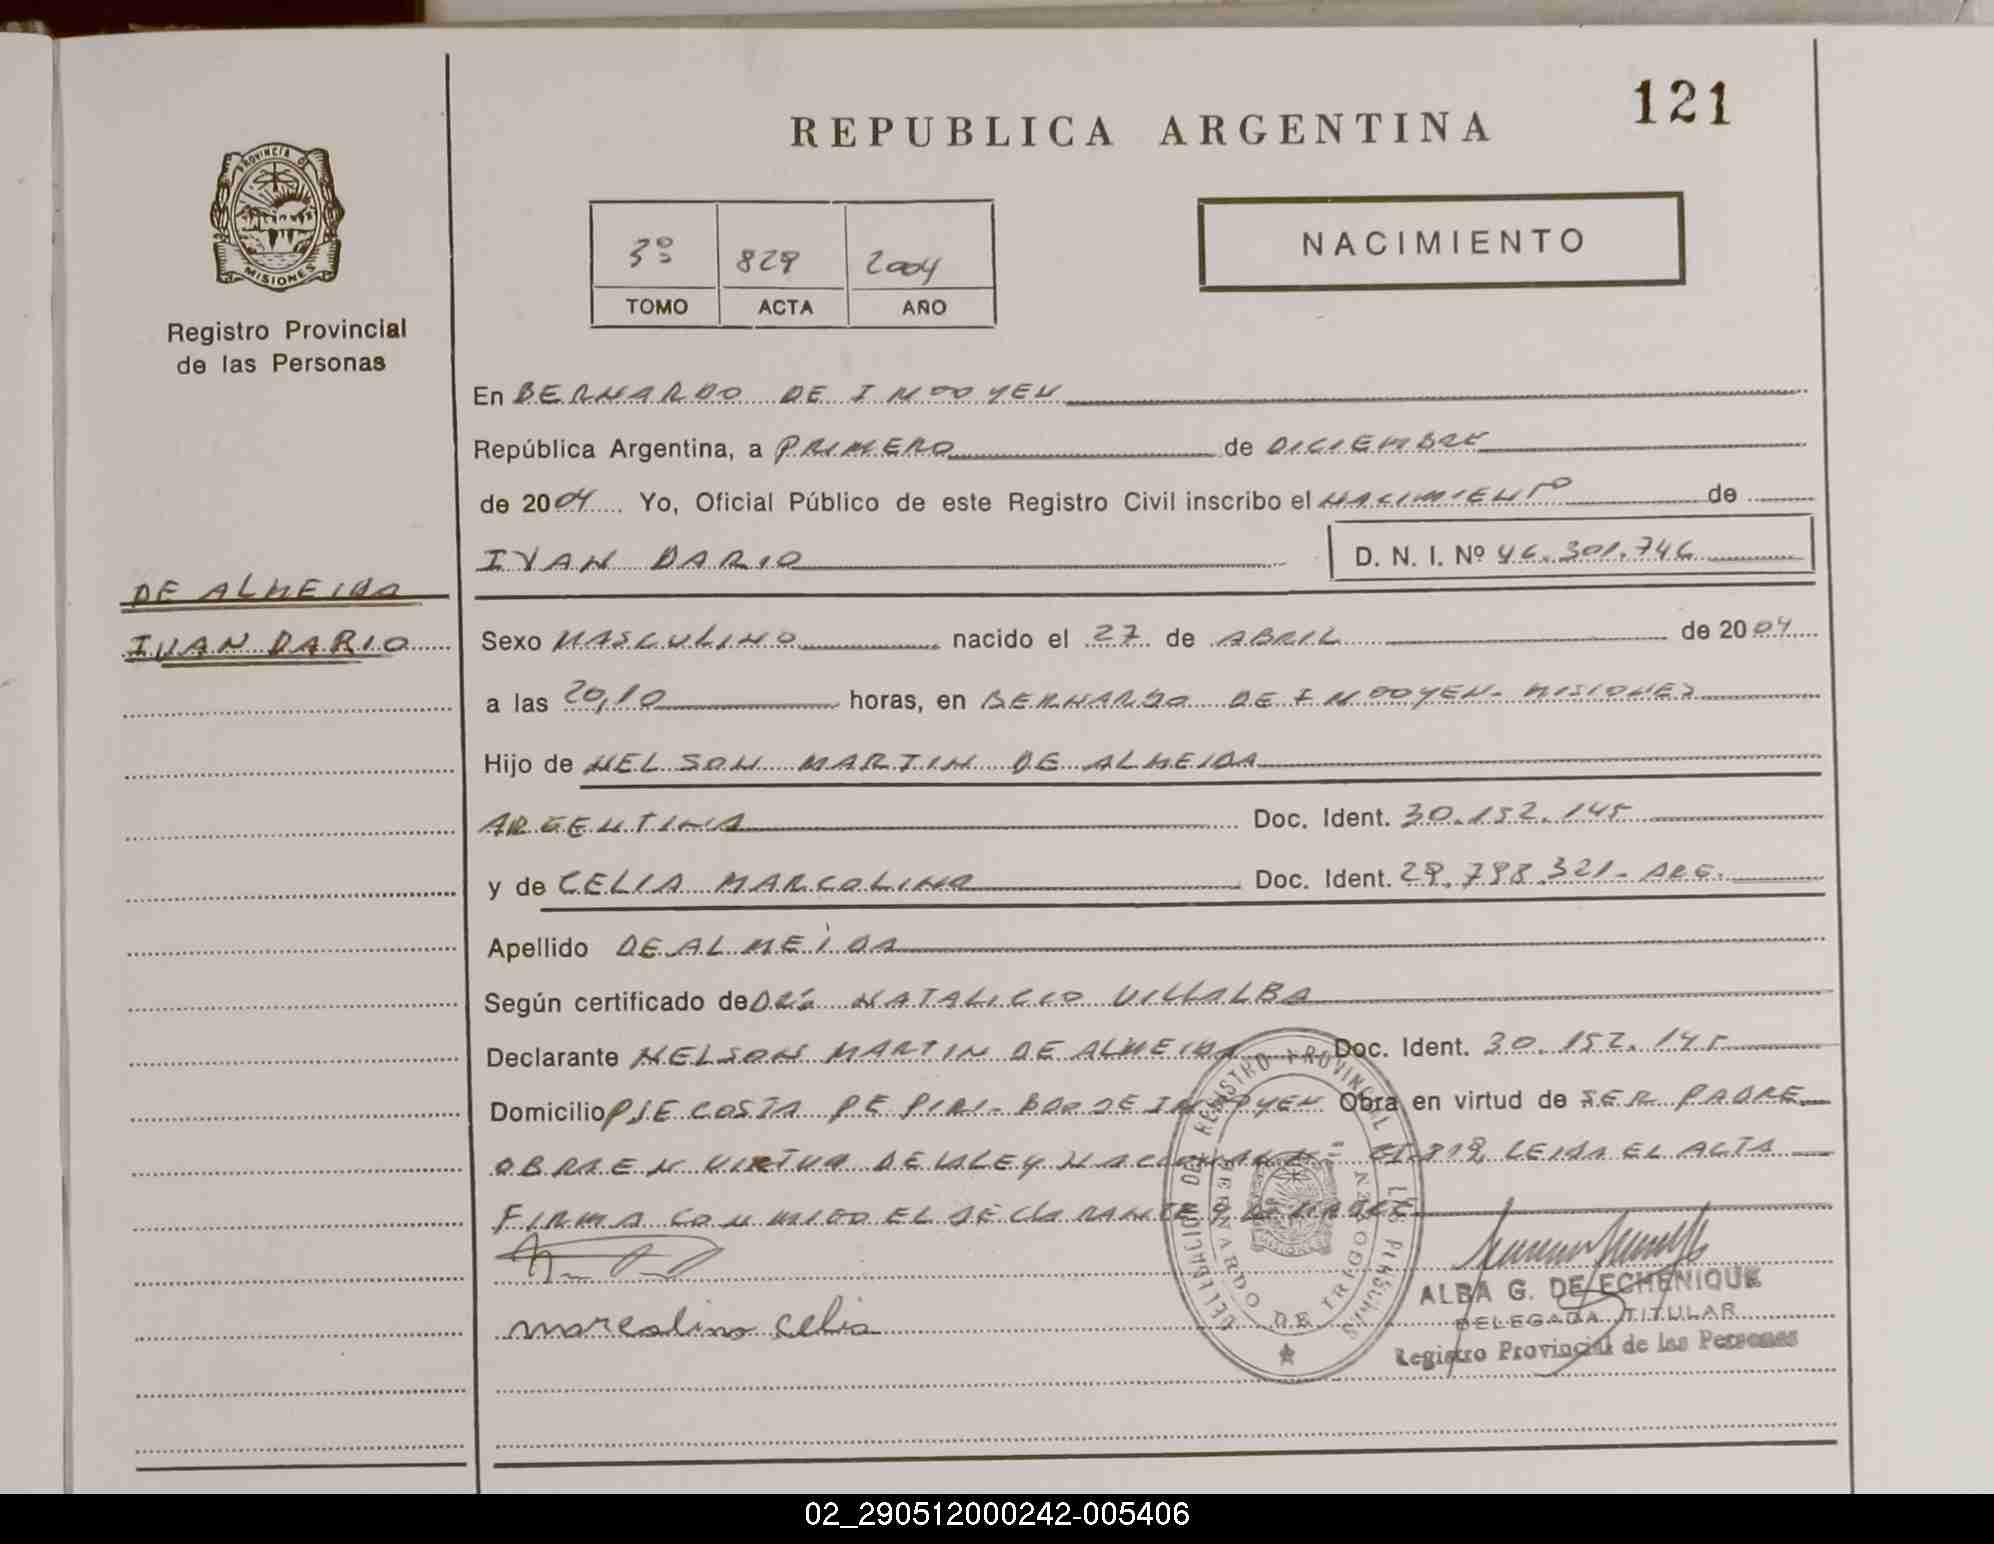 121
REPUBLICA ARGENTINA
NACIMIENTO
PROVINCIA D
MISIONES
Registro Provincial
de las Personas
3º 829 2004
TOMO ACTA AÑO
En BERNARDO DE IRIGOYEN
República Argentina, a PRIMERO de DICIEMBRE
de 2004 Yo, Oficial Público de este Registro Civil inscribo el NACIMIENTO de
IVAN DARIO D. N. I. Nº 46.301.746
DE ALMEIDA
IVAN DARIO
Sexo MASCULINO nacido el 27 de ABRIL de 2004
a las 20,10 horas, en BERNARDO DE IRIGOYEN- MISIONES
Hijo de NELSON MARTIN DE ALMEIDA
ARGENTINA Doc. Ident. 30.152.145
y de CELIA MARCOLINO Doc. Ident. 28.798.321- ARG.
Apellido DE ALMEIDA
Según certificado de NATALICIO VILLALBA
Declarante NELSON MARTIN DE ALMEIDA Doc. Ident. 30.152.145
Domicilio PJE COSTA PEPIRI- BDO DE IRIGOYEN Obra en virtud de SER PADRE
OBRA EN VIRTUD DE LA LEY NACIONAL LEIDA EL ACTA
FIRMA CONMIGO EL DECLARANTE Y LA MADRE
marcolino celia
DELEGACION DEL REGISTRO PROVINCIAL DE LAS PERSONAS
BERNARDO DE IRIGOYEN
ALBA G. DE ECHENIQUE
DELEGADA TITULAR
Registro Provincial de las Personas
02_290512000242-005406